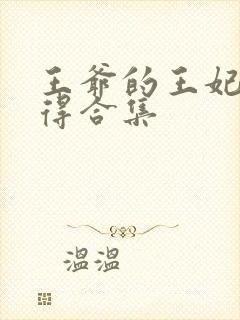 王爷的王妃
得合集
溫溫